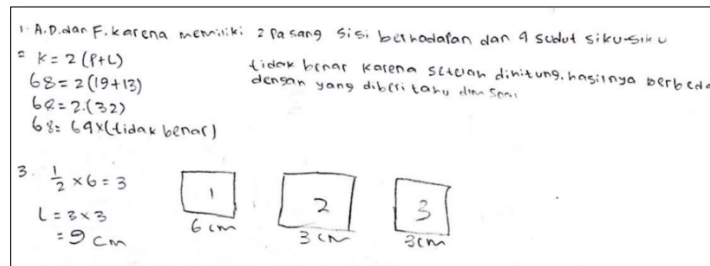 1. A.D.dan F. karena memiliki 2 pasang sisi berhadapan dan 4 sudut siku-siku
2 K = 2 (P+L)
68 = 2 (19+13)
68 = 2.(32)
68 = 64 x (tidak benar)
tidak benar karena setelah dihitung. hasilnya berbeda
dengan yang diberi tahu dim soal
3. 1/2 x 6 = 3
L = 3 x 3
= 9 cm
1
6 cm
2
3 cm
3
3 cm